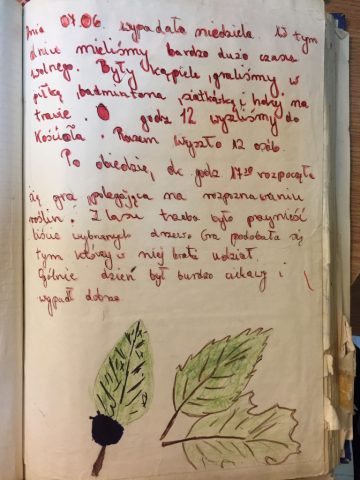 dnia 07.06. wypadała niedziela. W tym
dniu mieliśmy bardzo dużo czasu
wolnego. Były kąpiele, graliśmy w
piłkę, badmintona, siatkówkę i hokej na
trawie. O godz 12 wyszliśmy do
Kościoła. Razem wyszło 12 osób.
Po obiedzie, ok. godz 17³⁰ rozpoczęła
się gra polegająca na rozpoznawaniu
roślin. Z lasu trzeba było przynieść
liście wybranych drzew. Gra podobała się
tym którzy w niej brali udział.
Ogólnie dzień był bardzo ciekawy i
wypadł dobrze